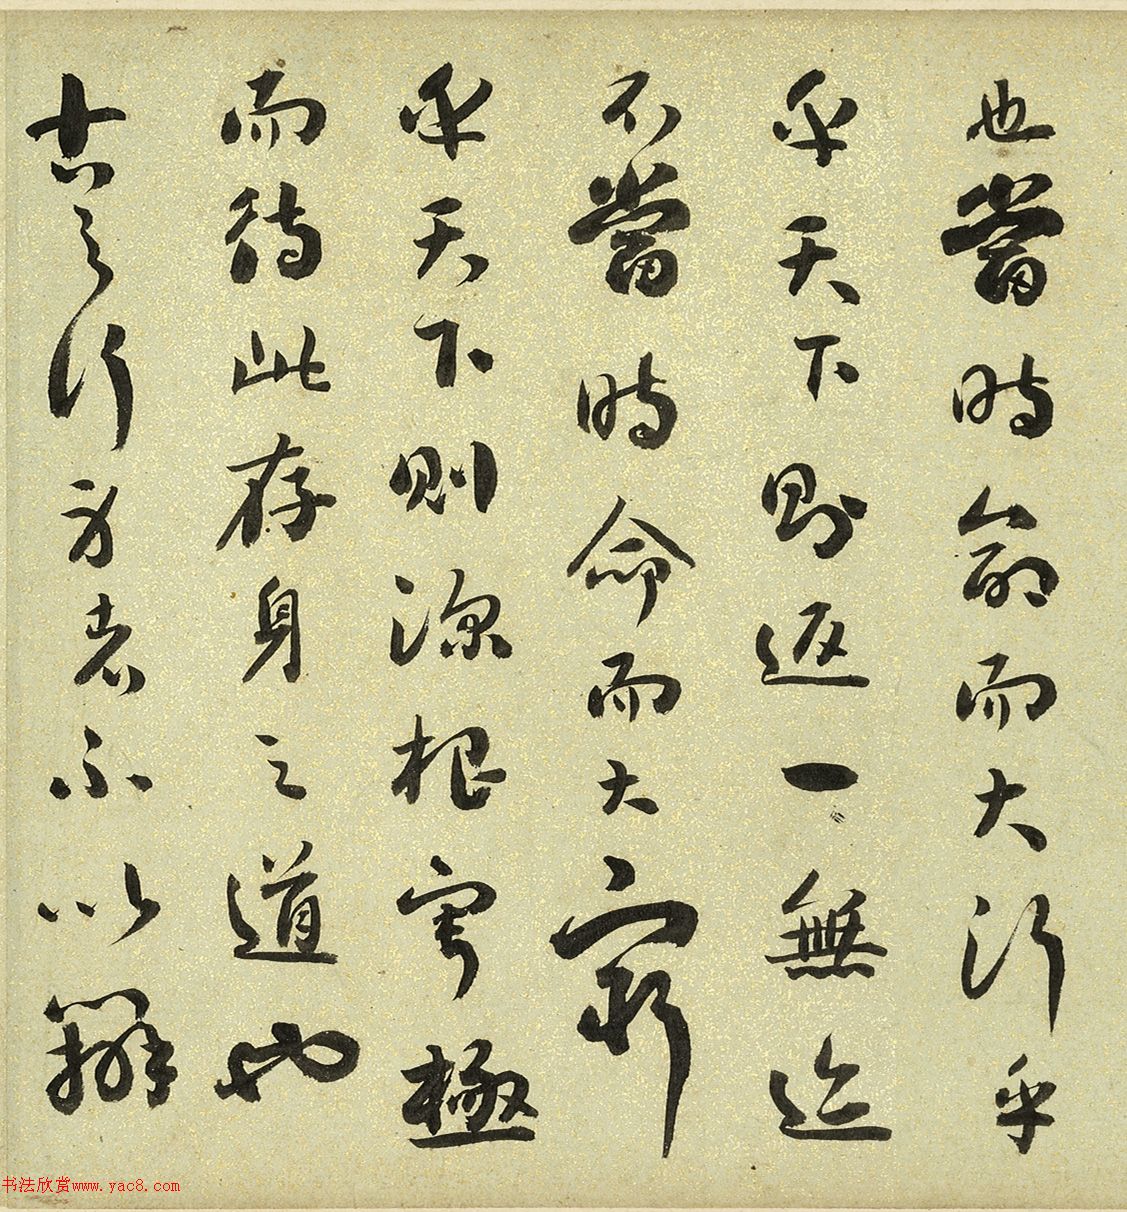 也當時命而大行乎
乎天下則返一無迹
不當時命而大窮
乎天下則深根寧極
而待此存身之道也
古之行身者不以辯
书法欣赏www.yac8.com